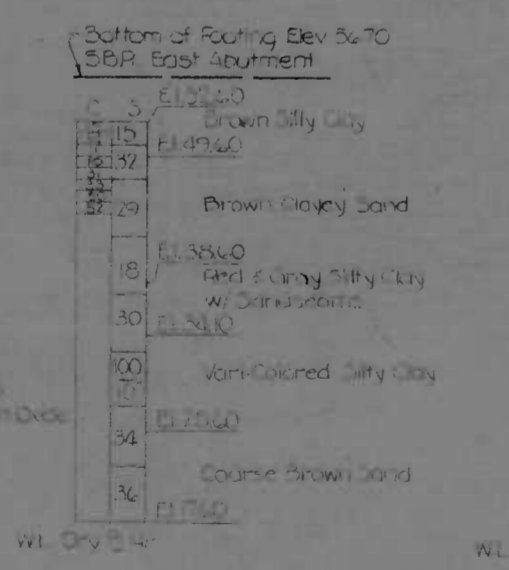 Bottom of Footing Elev 56.70
SBR East Abutment
C S
El. 52.60
Brown Silty Clay
15
El. 49.60
32
29
Brown Clayey Sand
El. 38.60
18
Red & Gray Silty Clay
w/ Sandseams
El. 34.10
30
100
Vari-Colored Silty Clay
El. 25.60
34
Course Brown Sand
36
El. 17.60
W.L. Dry
W.L.